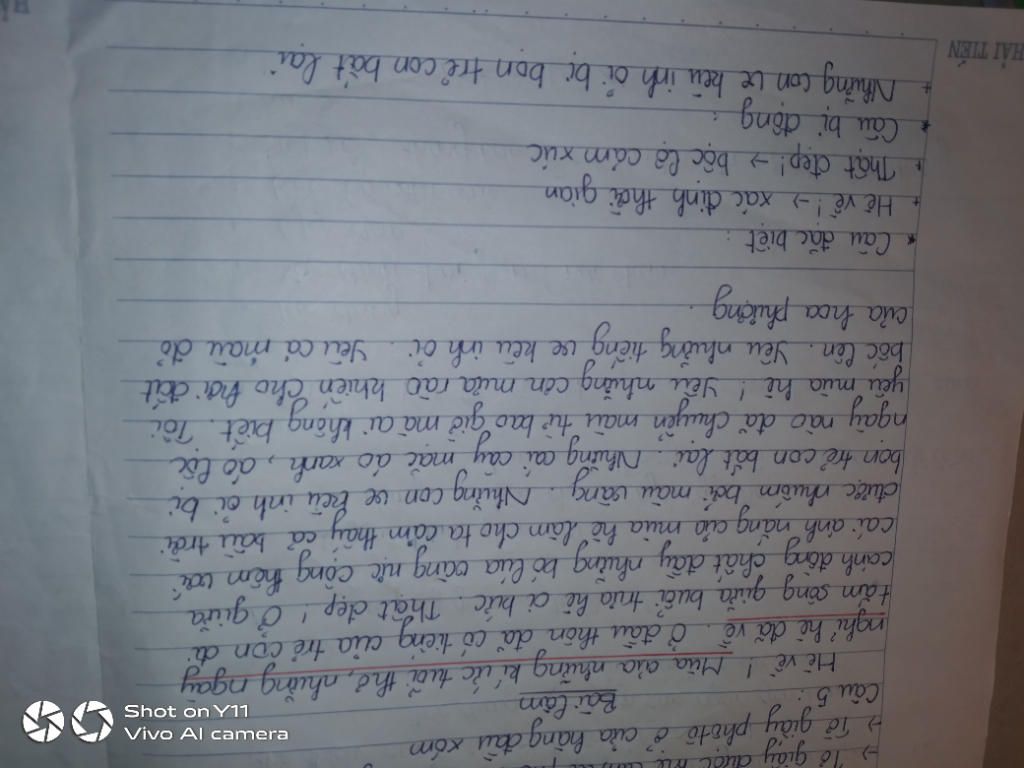 → Tờ giấy được
→ Tờ giấy phôtô ở cửa hàng đầu xóm
Câu 5 : Bài làm
Hè về ! Mùa của những kí ức tuổi thơ, những ngày
nghỉ hè đã về. Ở đầu thôn đã có tiếng của trẻ con đi
tắm sông giữa buổi trưa hè oi bức. Thật đẹp ! Ở giữa
cánh đồng chất đầy những bó lúa vàng ức cộng thêm với
cái ánh nắng của mùa hè làm cho ta cảm thấy cả bầu trời
được nhuộm bởi màu vàng. Những con ve kêu inh ỏi bị
bọn trẻ con bắt lại. Những cái cây mặc áo xanh, áo lộc
ngày nào đã chuyển màu từ bao giờ mà ai không biết. Tôi
yêu mùa hè ! Yêu những cơn mưa rào khiến cho hơi đất
bốc lên. Yêu những tiếng ve kêu inh ỏi. Yêu cả màu đỏ
của hoa phượng.
* Câu đặc biệt :
+ Hè về ! → xác định thời gian
+ Thật đẹp ! → bộc lộ cảm xúc
* Câu bị động :
+ Những con ve kêu inh ỏi bị bọn trẻ con bắt lại
HẢI TIẾN
HẢ
Shot on Y11
Vivo AI camera